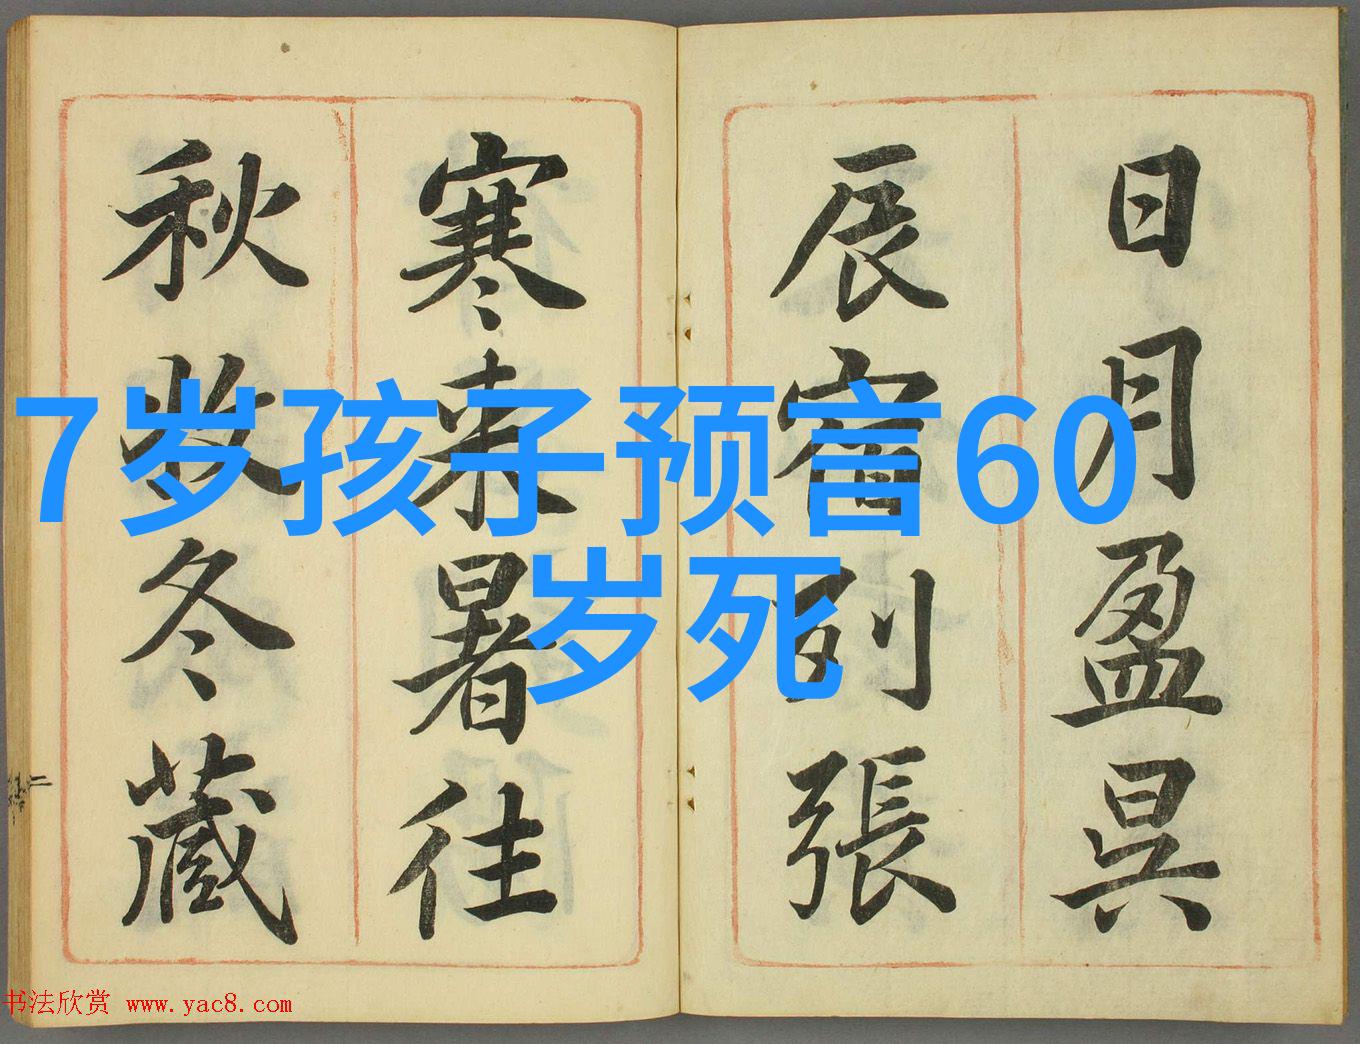 日月盈昃
辰宿列張
寒来暑往
秋收冬藏
7岁孩子预言60
岁死
书法欣赏 www.yac8.com